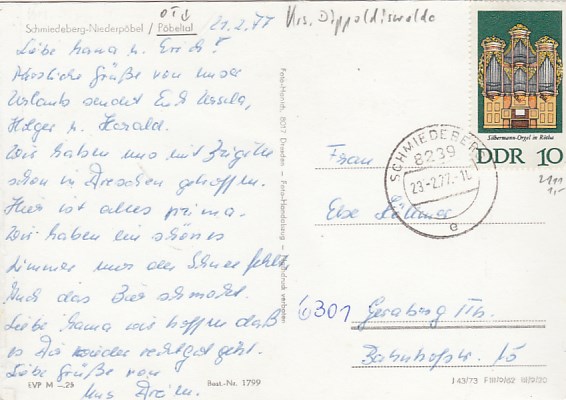 OTĐ
21.2.77
Krs. Dippoldiswalde
Schmiedeberg-Niederpöbel / Pöbeltal
Liebe Mama u. Erich!
Herzliche Grüße von unser
Urlaub sendet Euch Ursula,
Holger u. Harald.
Wir haben uns mit Brigitte
schon in Dresden getroffen.
Hier ist alles prima.
Wir haben ein schönes
Zimmer nur der Schnee fehlt.
Und das Bier schmeckt.
Liebe Mama wir hoffen daß
es Dir wieder recht gut geht.
Liebe Grüße von
uns Drein.
EVP M –.25
Best.-Nr. 1799
Foto-Handzug
Silbermann-Orgel in Rötha
DDR 10
SCHMIEDEBERG
8239
23-2.77.-10
e
2911
1,-
Frau
Else
6301
Geraberg Th.
Bahnhofstr. 15
J 43/73 F III/9/62 III/9/20